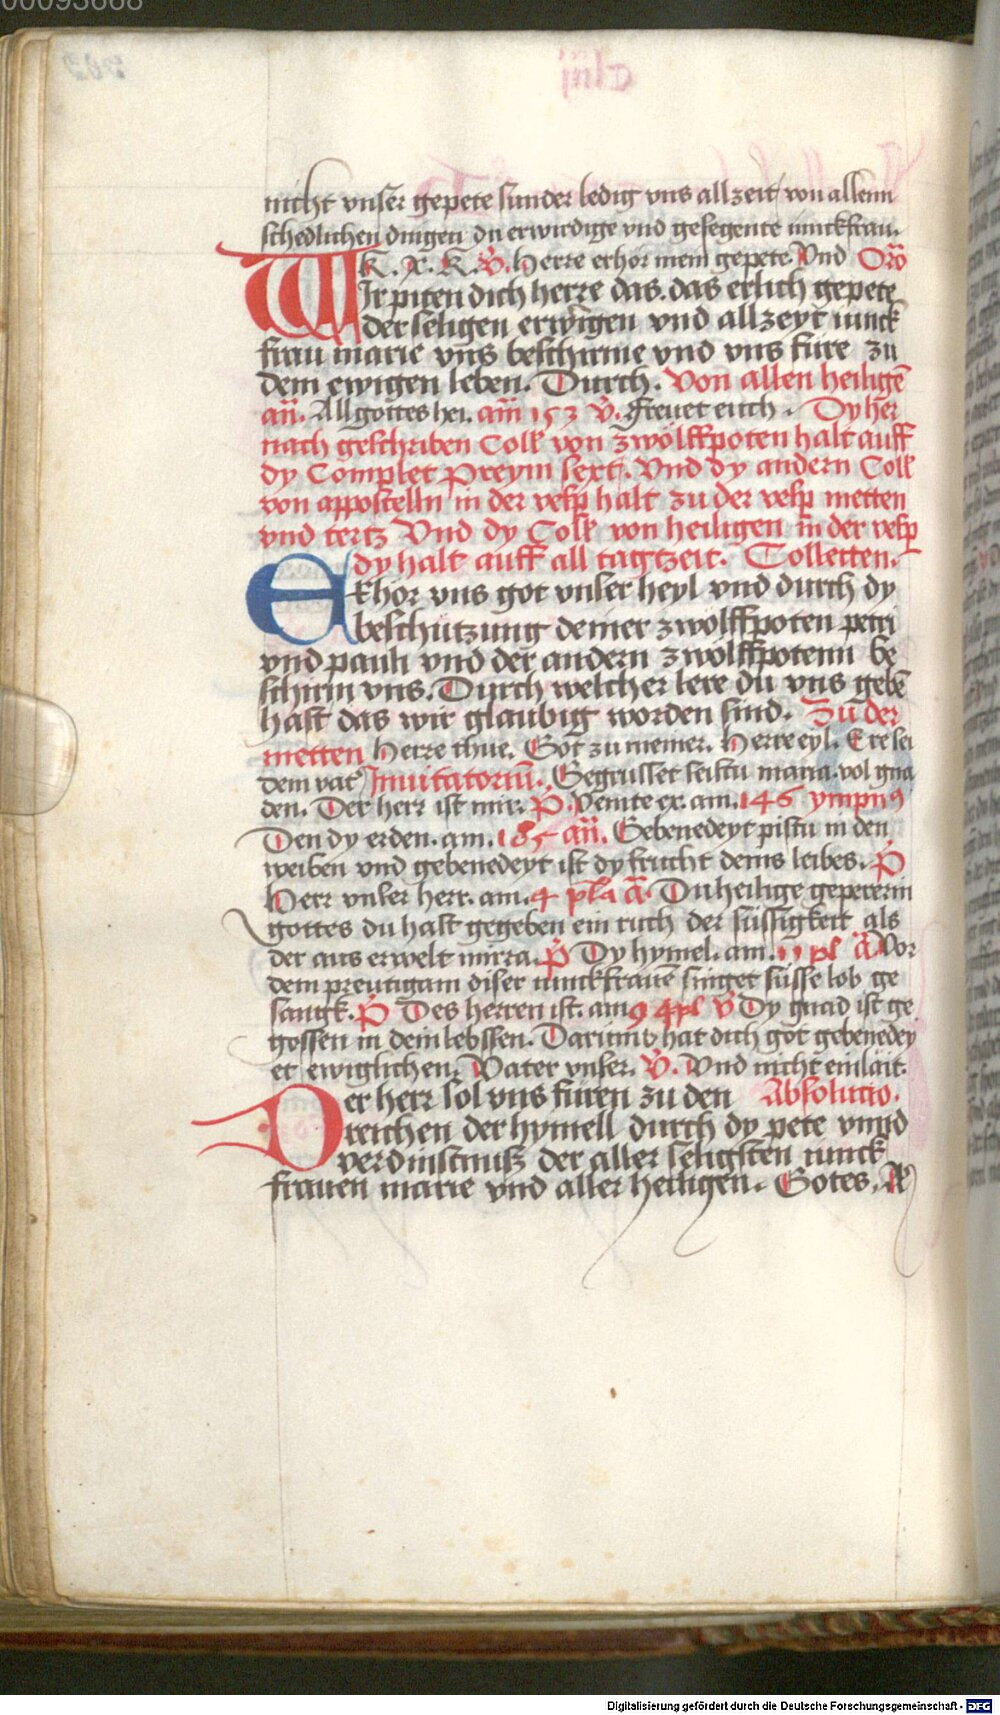 00093668
nicht vnser gepete sunder ledig vns allzeit von allenn
schedlichen dingen du erwirdige vnd gesegente iunckfrau.
K. X. K. V. Herre erhör mein gepete. Vnd Orõ
WIr piten dich herre das. das erlich gepete
der seligen erwirgen vnd allzeyt iunck
frau marie vns beschirme vnd vns füre zu
dem ewigen leben. Durch. Von allen heiligē
añ. All gottes hei. am 153 V. Freuet euch. Dy her
nach geschriben Coll von zwölffpoten halt auff
dy Complet Preym sext. Vnd dy andern Coll
von appostelln in der vesp halt zu der vesp metten
vnd tertz Vnd dy Coll von heiligen in der vesp
dy halt auff all tagtzeit. Collecten.
Erhör vns got vnser heyl vnd durch dy
beschützung deiner zwölffpoten petri
vnd pauli vnd der andern zwölffpotenn be
schirm vns. Durch welcher lere du vns gebē
hast das wir glaubig worden sind. Zu der
metten Herre thue. Got zu meiner. Herre eyl. Ere sei
dem vat Inuitatoriū. Gegrüsset seistu maria. vol gna
den. Der herr ist mir. P. Venite ex. am. 146 ympn9
Den dy erden. am. 185 añ. Gebenedeyt pistu in den
weiben vnd gebenedeyt ist dy frucht deins leibes. P
Herr vnser herr. am. 4 pla A. Du heilige gepererin
gottes du hast gegeben ein ruch der süssigkeit als
der aus erwelt mirra. P Dy hymel. am. 11 pl A Vor
dem preutigam diser iunckfrauē singet süsse lob ge
sangk. P Des herren ist. am 9 4pl V Dy gnad ist ge
gossen in dein lebssen. Darümb hat dich got gebenedey
et ewiglichen. Vater vnser. V. Vnd nicht einlait.
Der herr sol vns füren zu den Absolutio.
reichen der hymell durch dy pete vnnd
verdinstnuß der aller seligsten iunck
frauen marie vnd aller heiligen. Gotes. A
Digitalisierung gefördert durch die Deutsche Forschungsgemeinschaft - DFG